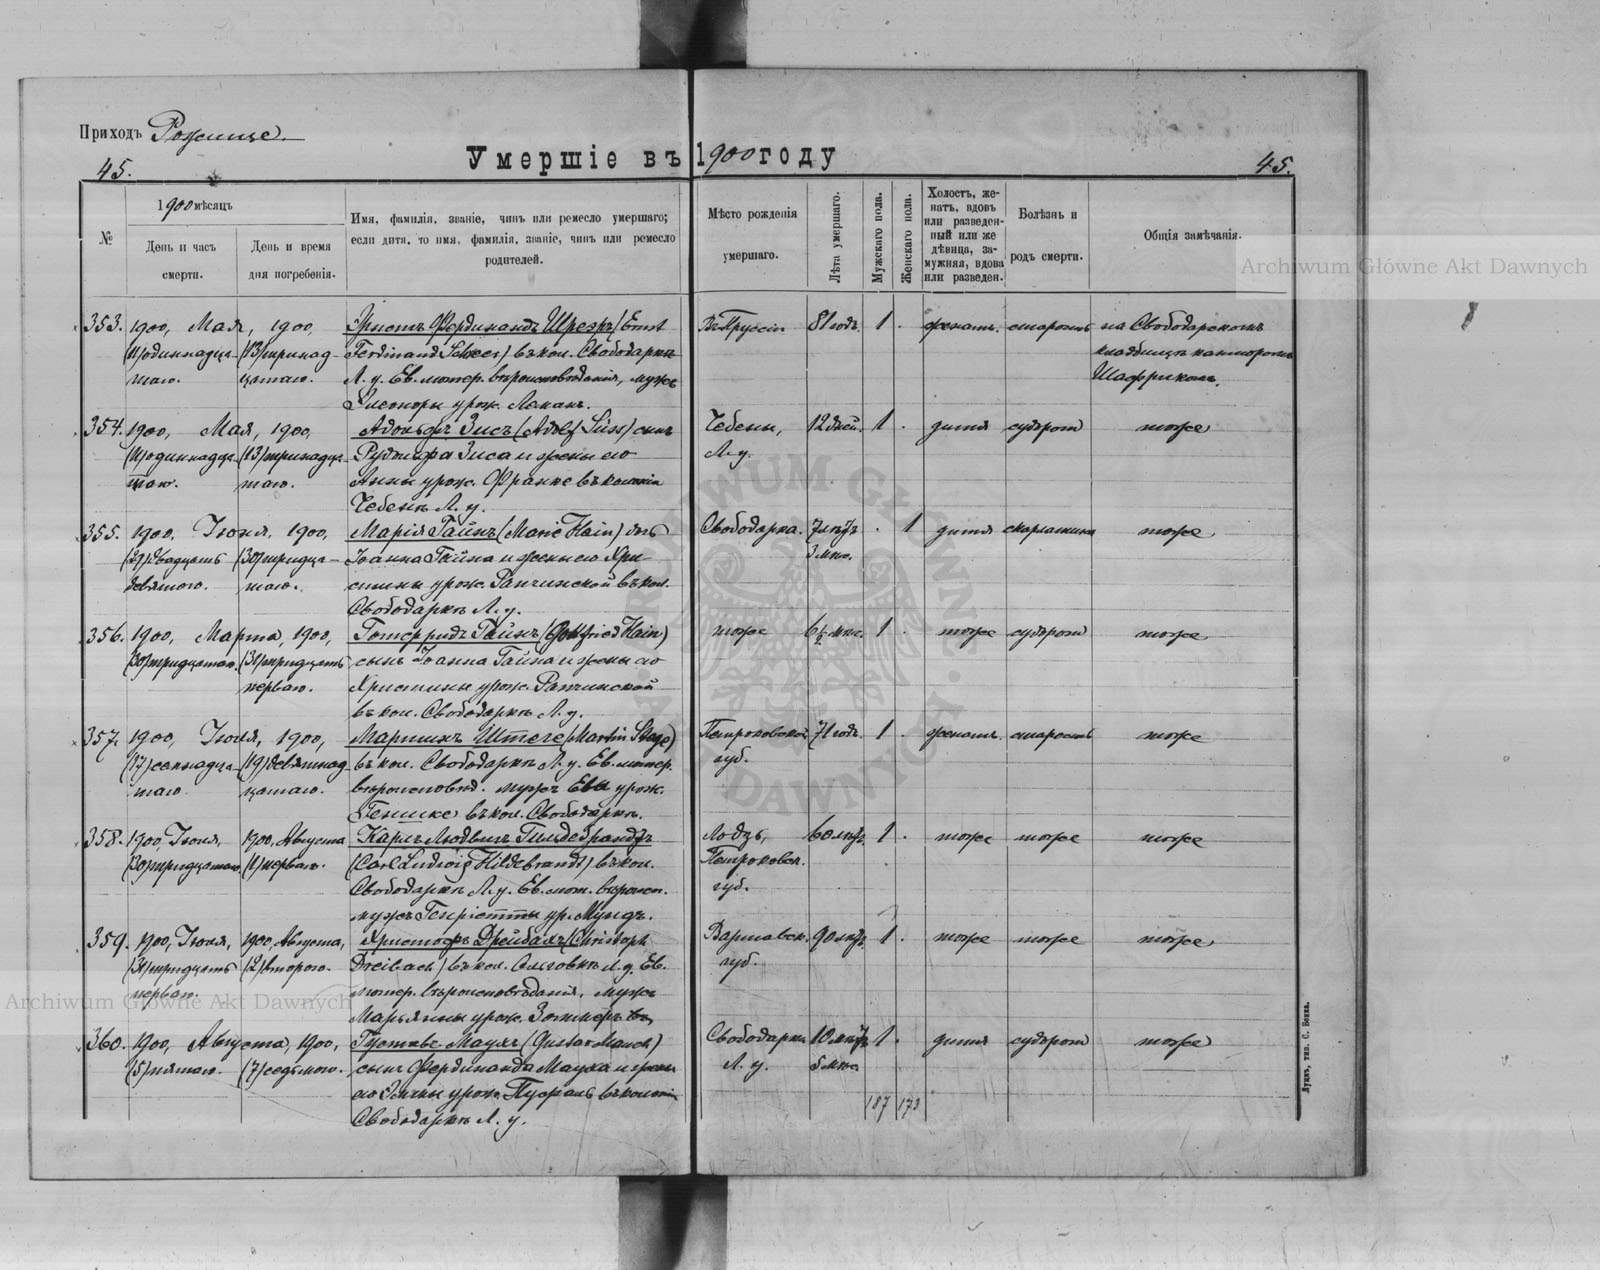 Приходъ Рожище.
45.
Умершіе въ 1900 году
45.
№
1900 мѣсяцъ
День и часъ
смерти.
День и время
дня погребенія.
Имя, фамилія, званіе, чинъ или ремесло умершаго;
если дитя, то имя, фамилія, званіе, чинъ или ремесло
родителей.
Мѣсто рожденія
умершаго.
Лѣта умершаго.
Мужскаго пола.
Женскаго пола.
Холостъ, же-
натъ, вдовъ
или разведен-
ный или же
дѣвица, за-
мужняя, вдова
или разведен.
Болѣзнь и
родъ смерти.
Общія замѣчанія.
353.
1900, Мая, 1900,
(11) одиннадца-
таго.
(13) тринад-
цатаго.
Эрнстъ Фердинандъ Шреэръ (Ernst
Ferdinand) въ кол. Свободаркѣ
Л. у. Ев. лютер. вѣроисповѣданія, мужъ
Элеоноры урож.
Въ Пруссіи
81 годъ.
1
женатъ.
старость
на Свободарскомъ
кладбищѣ канторомъ
354.
1900, Мая, 1900,
(11) одиннадца-
таго.
(13) тринадца-
таго.
Адольфъ Зисъ (Adolf Süss) сынъ
Рудольфа Зиса и жены его
Анны урож. Франке въ колоніи
Чебенѣ Л. у.
Чебены,
Л. у.
12 дней.
1
дитя
судорог
тоже
355.
1900, Іюня, 1900,
(29) двадцать
девятаго.
(30) тридца-
таго.
Марія Гайнъ (Marie Hain) дочь
Іоанна Гайна и жены его Хри-
стины урож. Рапчинской въ кол.
Свободаркѣ Л. у.
Свободарка.
7 лѣтъ
3 мѣс.
1
дитя
скарлатина
тоже
356.
1900, Марта, 1900,
(30) тридцатаго.
(31) тридцать
перваго.
Готфридъ Гайнъ (Gottfried Hain)
сынъ Іоанна Гайна и жены его
Христины урож. Рапчинской
въ кол. Свободаркѣ Л. у.
тоже
6½ мѣс.
1
тоже
судорог
тоже
357.
1900, Іюля, 1900,
(17) семнадца-
таго
(19) девятнад-
цатаго.
Мартинъ Штеге (Martin Stege)
въ кол. Свободаркѣ Л. у. Ев. лютер.
вѣроисповѣд. мужъ Евы урож.
Генике въ кол. Свободаркѣ.
Петроковской
губ.
71 годъ.
1
женатъ.
старость
тоже
358.
1900, Іюля,
(30) тридцатаго.
1900, Августа
(1) перваго.
Карлъ Людвигъ Гильдебрандтъ
(Carl Ludwig Hildebrandt) въ кол.
Свободаркѣ Л. у. Ев. лют. вѣроисп.
мужъ Генріетты ур. Мундъ.
Лодзь,
Петроковск.
губ.
60 лѣтъ
1
тоже
тоже
тоже
359.
1900, Іюля,
(31) тридцать
перваго.
1900, Августа,
(2) второго.
Христофъ Дрейбахъ (Christoph
Dreibach) въ кол. Ольговкѣ Л. у. Ев.
лютер. вѣроисповѣданія, мужъ
Марьяны урож.
Варшавск.
губ.
90 лѣтъ
1
тоже
тоже
тоже
360.
1900, Августа, 1900,
(5) пятаго.
(7) седьмого.
Густавъ Маухъ (Gustav Mauch)
сынъ Фердинанда Мауха и жены
его урож. въ колоніи
Свободаркѣ Л. у.
Свободарка
Л. у.
10 лѣтъ
5 мѣс.
1
дитя
судорог
тоже
187
173
Луцкъ, тип. С. Бокка.
Archiwum Główne Akt Dawnych
Archiwum Główne Akt Dawnych
ARCHIWUM GŁÓWNE AKT DAWNYCH